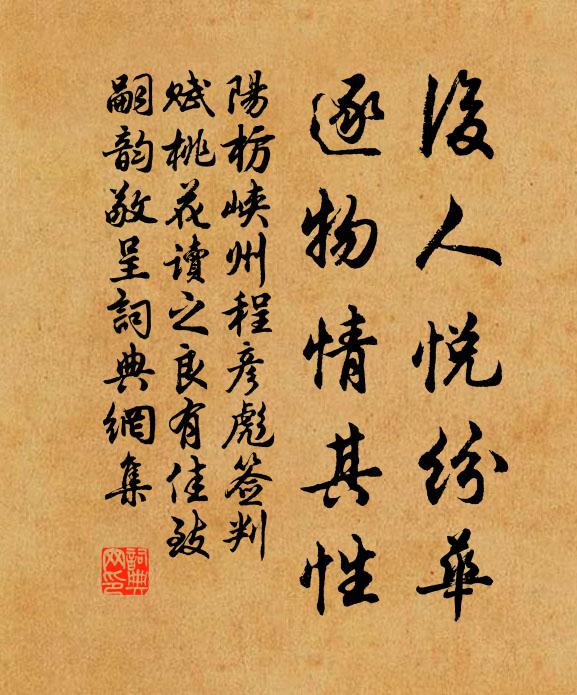 後人悅紛華
逐物情其性
陽枋峽州程彦彪簽判
賦桃花讀之良有佳致
嗣韵敬呈詞典網集
詞典网印